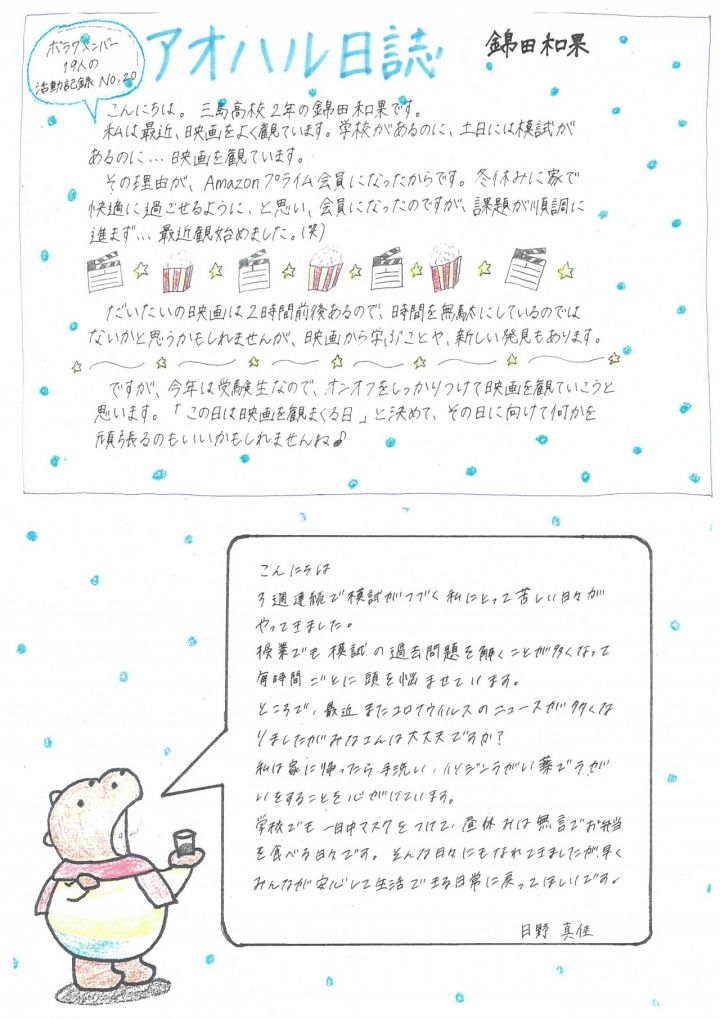 ボラクメンバー
19人の
活動記録 No.20
アオハル日誌
錦田和果
こんにちは。三島高校2年の錦田和果です。
私は最近、映画をよく観ています。学校があるのに、土日には模試が
あるのに…映画を観ています。
その理由が、Amazonプライム会員になったからです。冬休みに家で
快適に過ごせるように、と思い、会員になったのですが、課題が順調に
進まず…最近観始めました。(笑)
だいたいの映画は2時間前後あるので、時間を無駄にしているのでは
ないかと思うかもしれませんが、映画から学ぶことや、新しい発見もあります。
ですが、今年は受験生なので、オンオフをしっかりつけて映画を観ていこうと
思います。「この日は映画を観まくる日」と決めて、その日に向けて何かを
頑張るのもいいかもしれませんね♪
こんにちは
3週連続で模試がつづく私にとって苦しい日々が
やってきました。
授業でも模試の過去問題を解くことが多くなって
毎時間ごとに頭を悩ませています。
ところで、最近またコロナウイルスのニュースが多くな
りましたがみなさんは大丈夫ですか?
私は家に帰ったら手洗い、イソジンうがい薬でうが
いをすることを心がけています。
学校でも一日中マスクをつけて、昼休みは無言でお弁当
を食べる日々です。そんな日々にもなれてきましたが、早く
みんなが安心して生活できる日常に戻ってほしいです。
日野 真佳